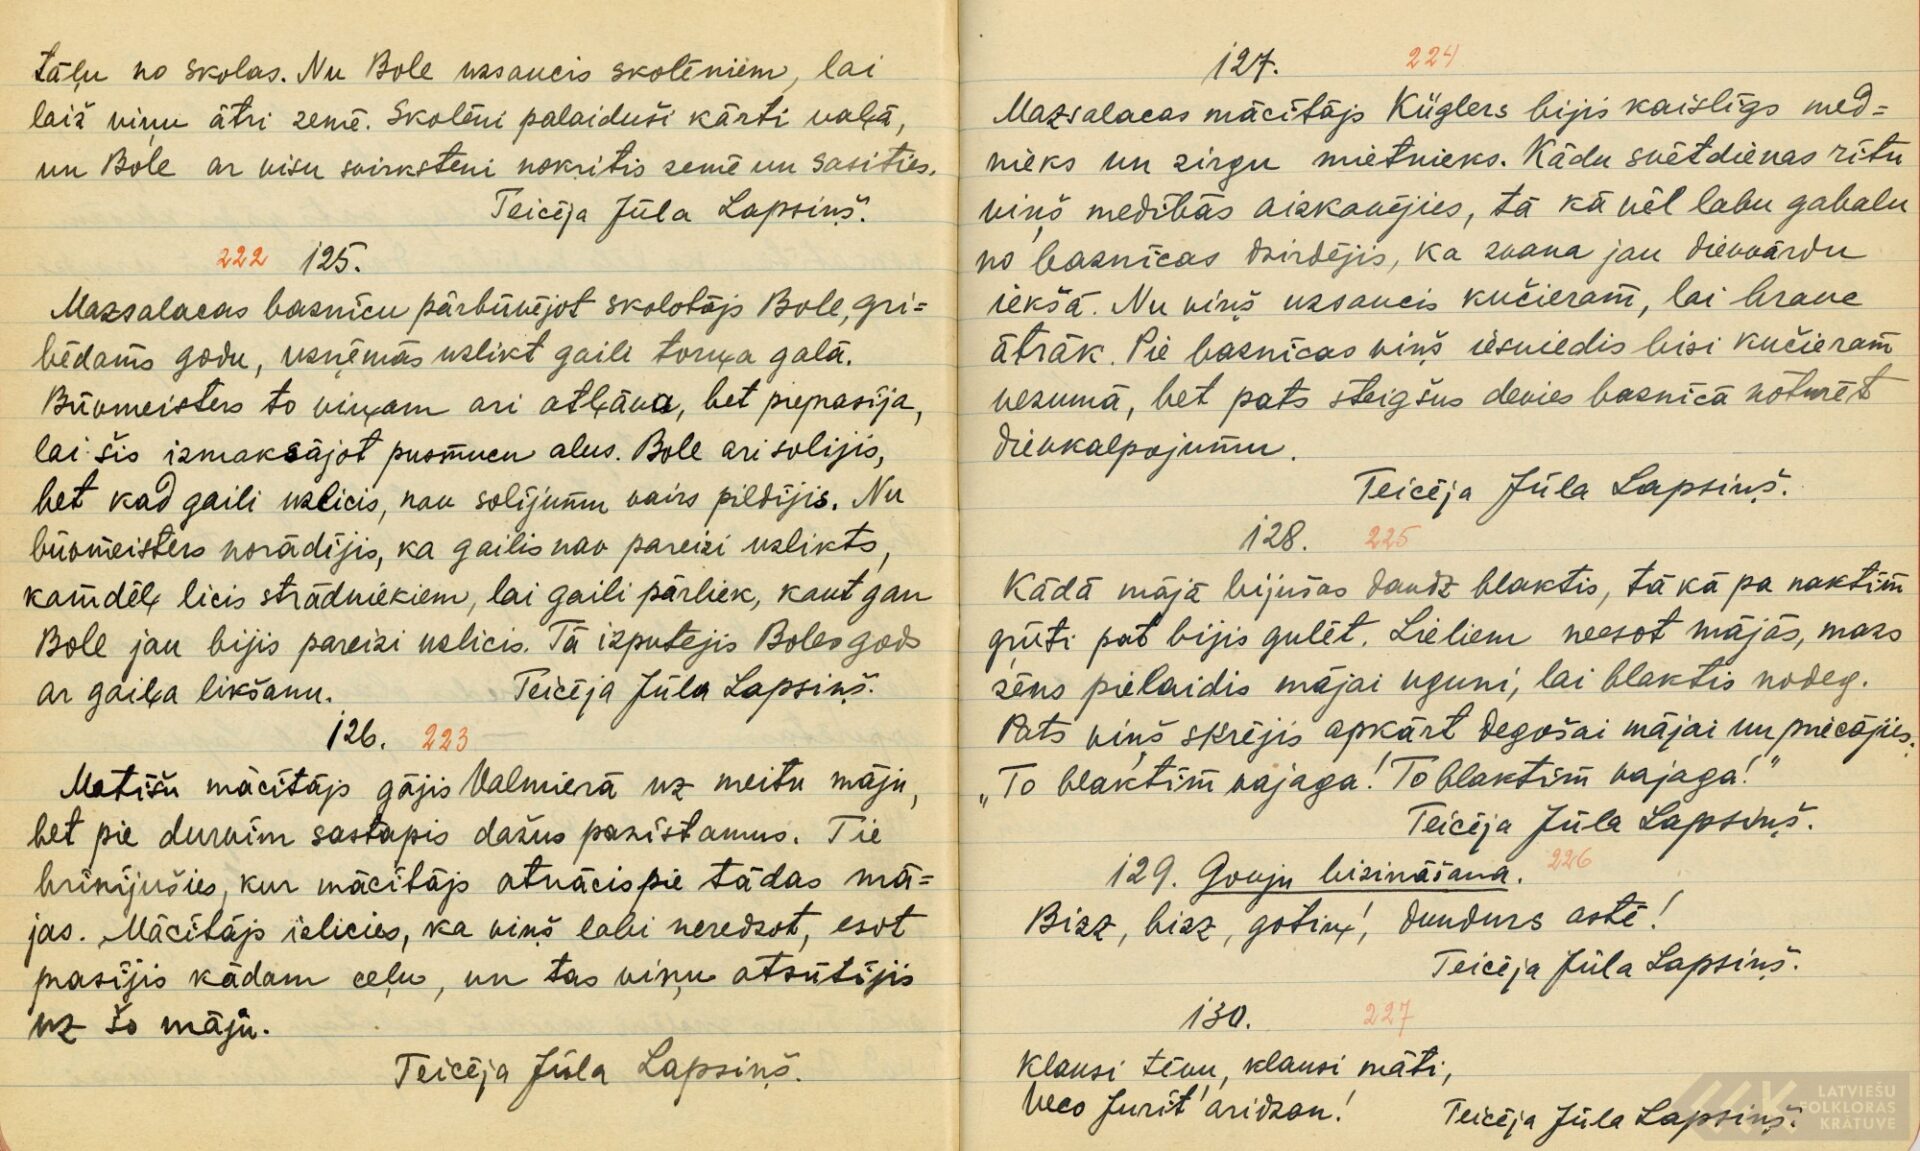 tāļu no skolas. Nu Bole uzsaucis skolēniem, lai
laiž viņu ātri zemē. Skolēni palaiduši kārti vaļā,
un Bole ar visu svirksteni nokritis zemē un sasities.
Teicēja Jūla Lapsiņš.
222 125.
Mazsalacas baznīcu pārbūvējot skolotājs Bole, gri=
bēdams godu, uzņēmās uzlikt gaili torņa galā.
Būvmeisters to viņam ari atļāva, bet pieprasīja,
lai šis izmaksājot pusmucu alus. Bole ari solijis,
bet kad gaili uzlicis, nav solījumu vairs pildījis. Nu
būvmeisters norādījis, ka gailis nav pareizi uzlikts,
kamdēļ licis strādniekiem, lai gaili pārliek, kaut gan
Bole jau bijis pareizi uzlicis. Tā izputējis Boles gods
ar gaiļa likšanu. Teicēja Jūla Lapsiņš.
126. 223
Matīšu mācītājs gājis Valmierā uz meitu māju,
bet pie durvīm sastapis dažus pazīstamus. Tie
brīnījušies, kur mācītājs atnācis pie tādas mā=
jas. Mācītājs izlicies, ka viņš labi neredzot, esot
prasījis kādam ceļu, un tas viņu atsūtījis
uz šo māju.
Teicēja Jūla Lapsiņš.
127. 224
Mazsalacas mācītājs Küglers bijis kaislīgs med=
nieks un zirgu mietnieks. Kādu svētdienas rītu
viņš medībās aizkavējies, tā kā vēl labu gabalu
no baznīcas dzirdējis, ka zvana jau dievvārdu
iekšā. Nu viņš uzsaucis kučieram, lai brauc
ātrāk. Pie baznīcas viņš iesviedis bisi kučieram
vezumā, bet pats steigšus devies baznīcā noturēt
dievkalpojumu.
Teicēja Jūla Lapsiņš.
128. 225
Kādā mājā bijušas daudz blaktis, tā kā pa naktīm
grūti pat bijis gulēt. Lieliem neesot mājās, mazs
zēns pielaidis mājai uguni, lai blaktis nodeg.
Pats viņš skrējis apkārt degošai mājai un priecājies:
„To blaktīm vajaga! To blaktīm vajaga!"
Teicēja Jūla Lapsiņš.
129. Govju bizināšana. 226
Bizz, bizz, gotiņ!, dundurs astē!
Teicēja Jūla Lapsiņš.
130. 227
Klausi tēvu, klausi māti,
Veco Jurīt' aridzan!
Teicēja Jūla Lapsiņš.
LATVIEŠU
FOLKLORAS
KRĀTUVE